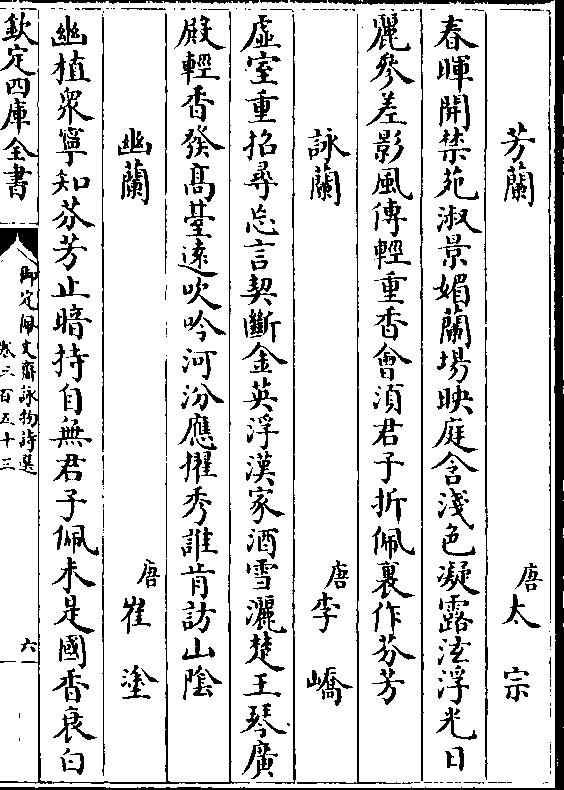 芳蘭 唐太宗
春暉開禁苑淑景媚蘭場映庭含淺色凝露泫浮光日
麗參差影風傳輕重香會須君子折佩裏作芬芳
詠蘭 唐李嶠
虚室重招尋忘言契斷金英浮漢家酒雪灑楚王琴廣
殿輕香發髙臺逺吹吟河汾應擢秀誰肯訪山陰
幽蘭 唐崔塗
幽植衆寧知芬芳止暗持自無君子佩未是國香衰白
欽定四庫全書
御定佩文齋詠物詩選
卷三百五十三
六